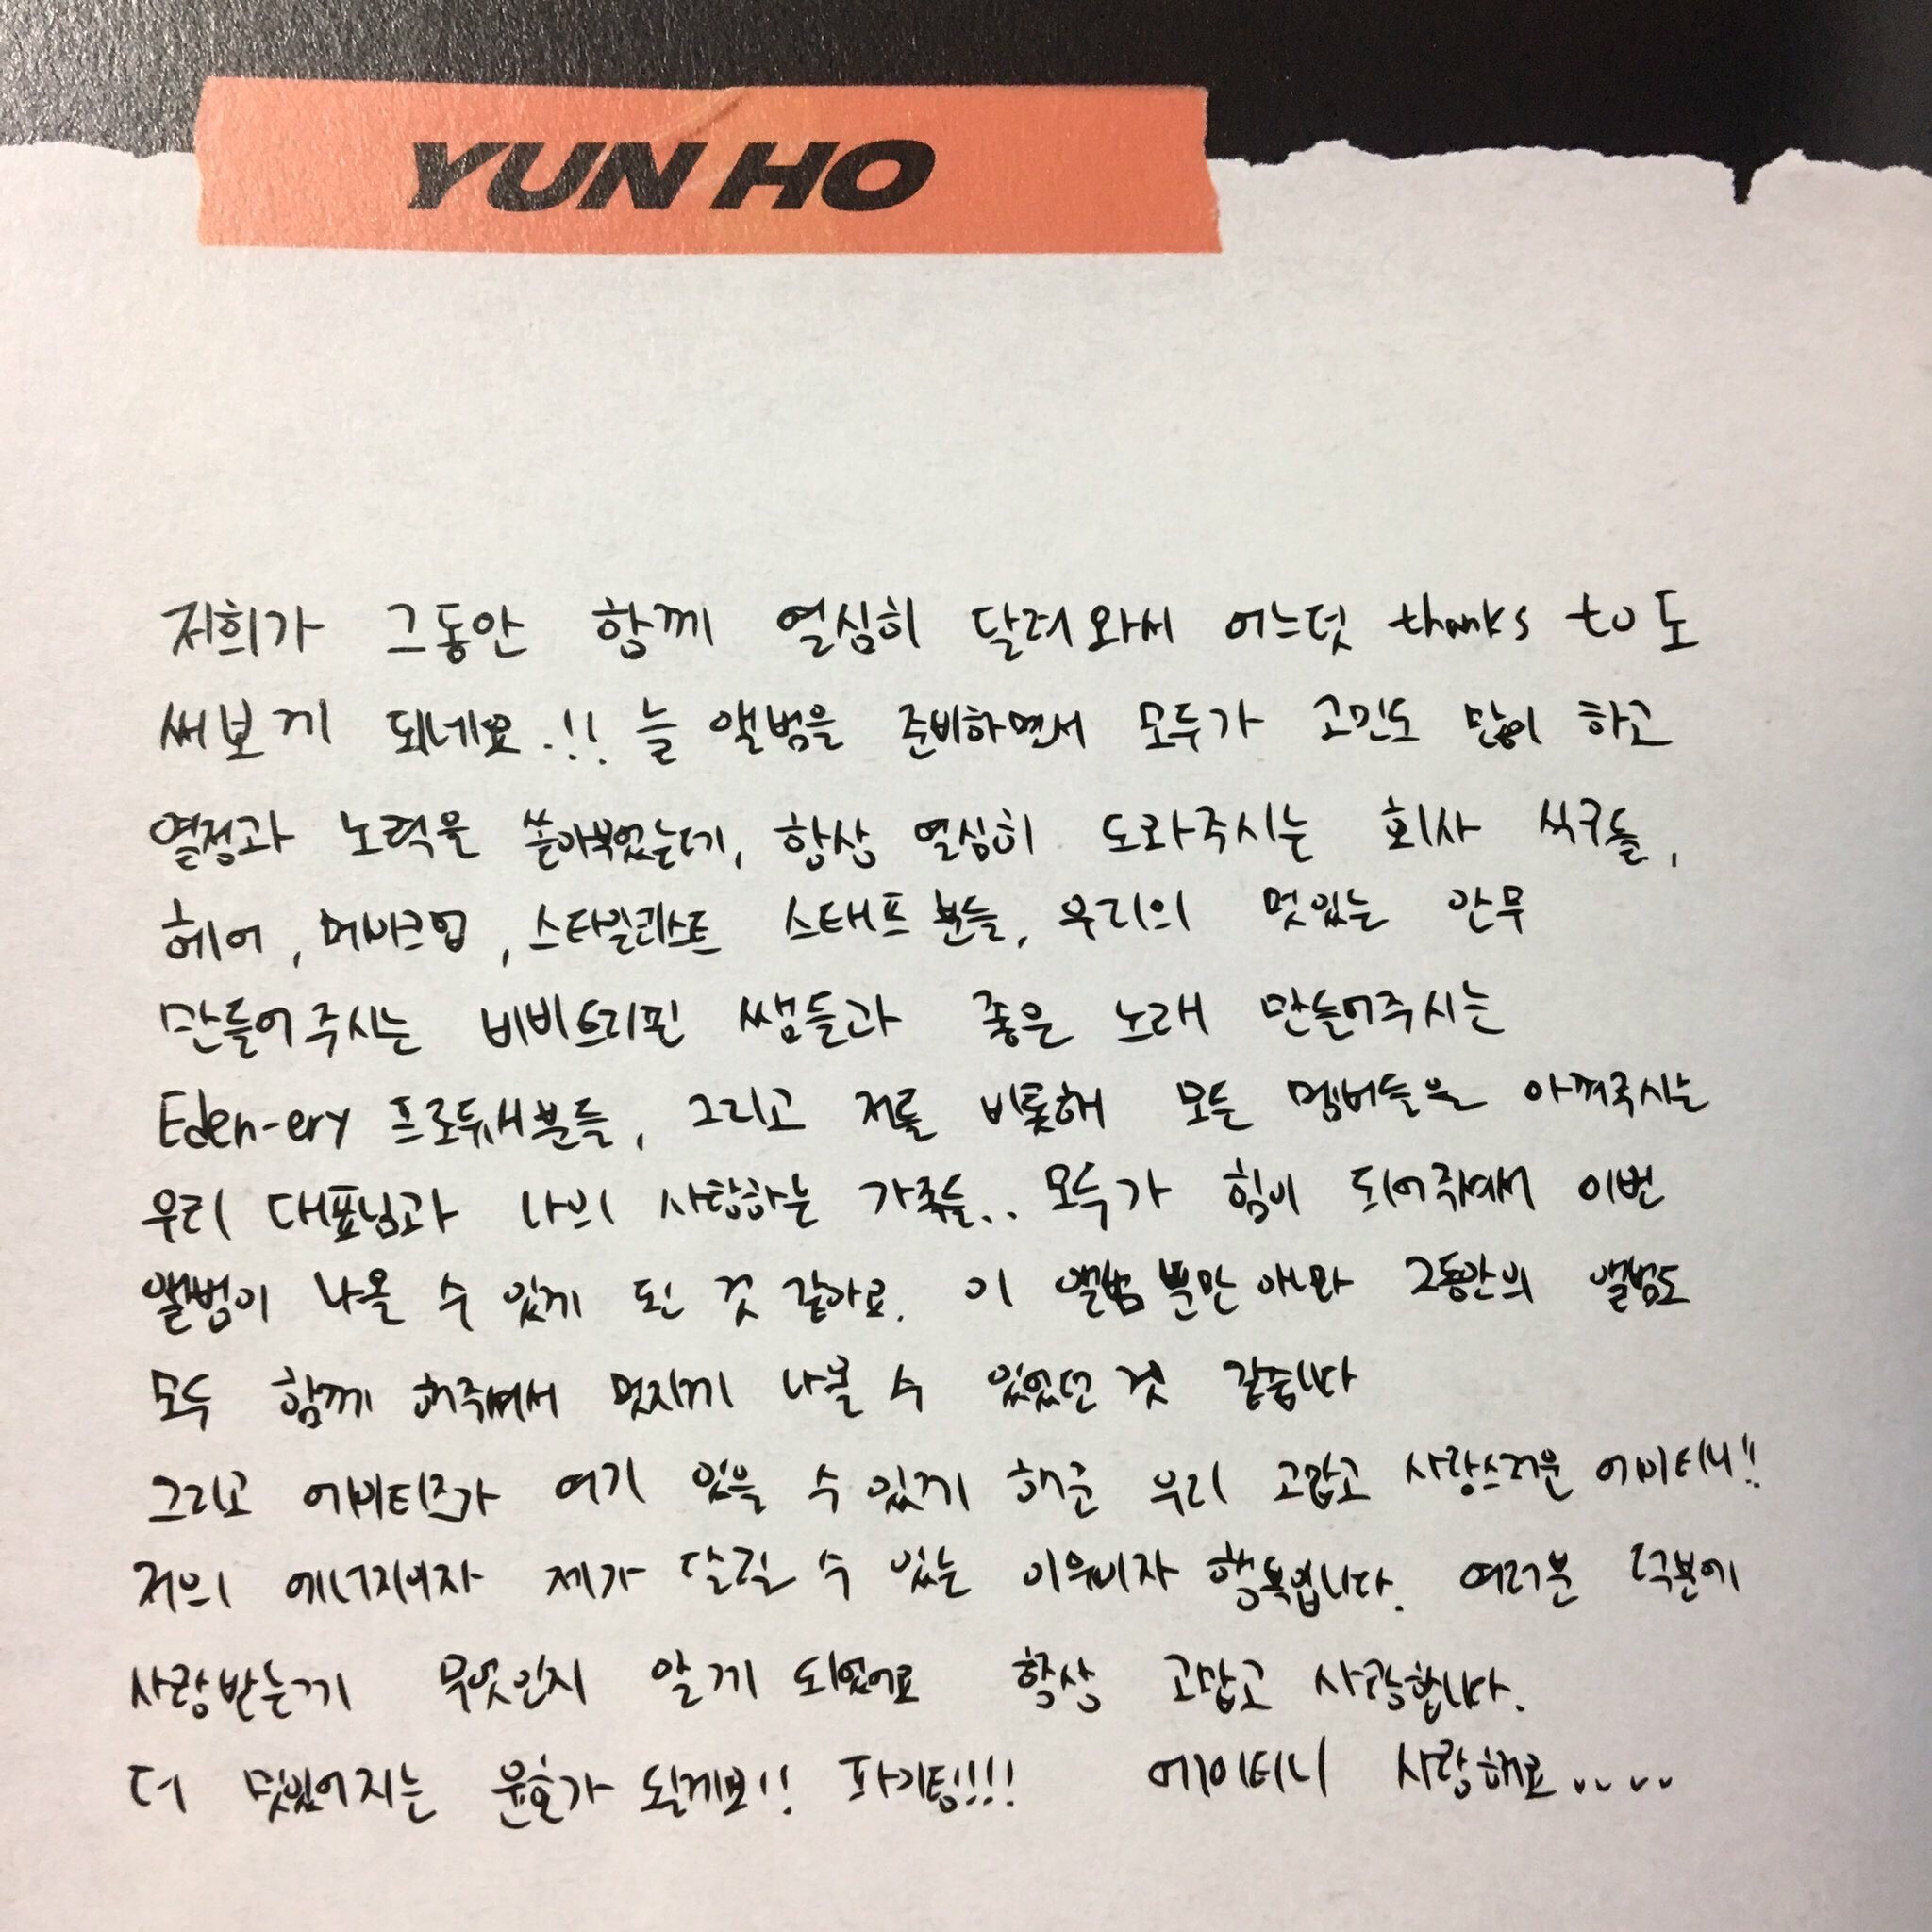 YUN HO
저희가 그동안 함께 열심히 달려와서 어느덧 thanks to도
써보게 되네요.!! 늘 앨범을 준비하면서 모두가 고민도 많이 하고
열정과 노력을 쏟아부었는데, 항상 열심히 도와주시는 회사 식구들,
헤어, 메이크업, 스타일리스트 스태프분들, 우리의 멋있는 안무
만들어주시는 비비트리핀 쌤들과 좋은 노래 만들어주시는
Eden-ery 프로듀서분들, 그리고 저를 비롯해 모든 멤버들을 아껴주시는
우리 대표님과 나의 사랑하는 가족들.. 모두가 힘이 되어주셔서 이번
앨범이 나올 수 있게 된 것 같아요. 이 앨범 뿐만 아니라 그동안의 앨범도
모두 함께 해주셔서 멋지게 나올 수 있었던 것 같습니다
그리고 에이티즈가 여기 있을 수 있게 해준 우리 고맙고 사랑스러운 에이티니!!
저의 에너지이자 제가 달릴 수 있는 이유이자 행복입니다. 여러분 덕분에
사랑받는게 무엇인지 알게 되었어요 항상 고맙고 사랑합니다.
더 멋있어지는 윤호가 될게요!! 파이팅!!! 에이티니 사랑해요.....